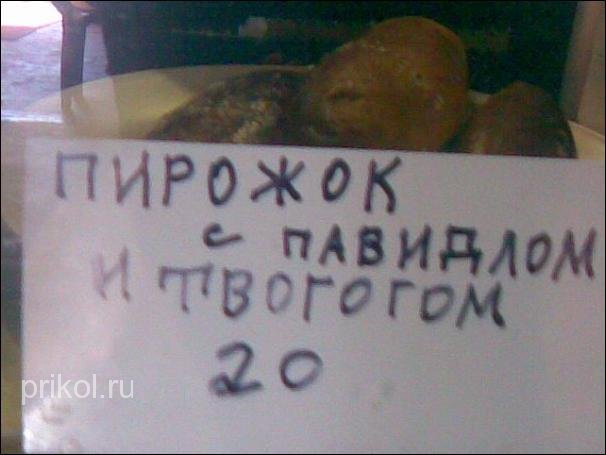 ПИРОЖОК
с ПАВИДЛОМ
И ТВОГОГОМ
20
prikol.ru